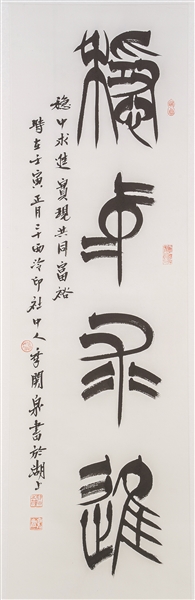 穩中求進
穩中求進 實現共同富裕
時在壬寅正月三十 西泠印社中人 李關泉書於湖上